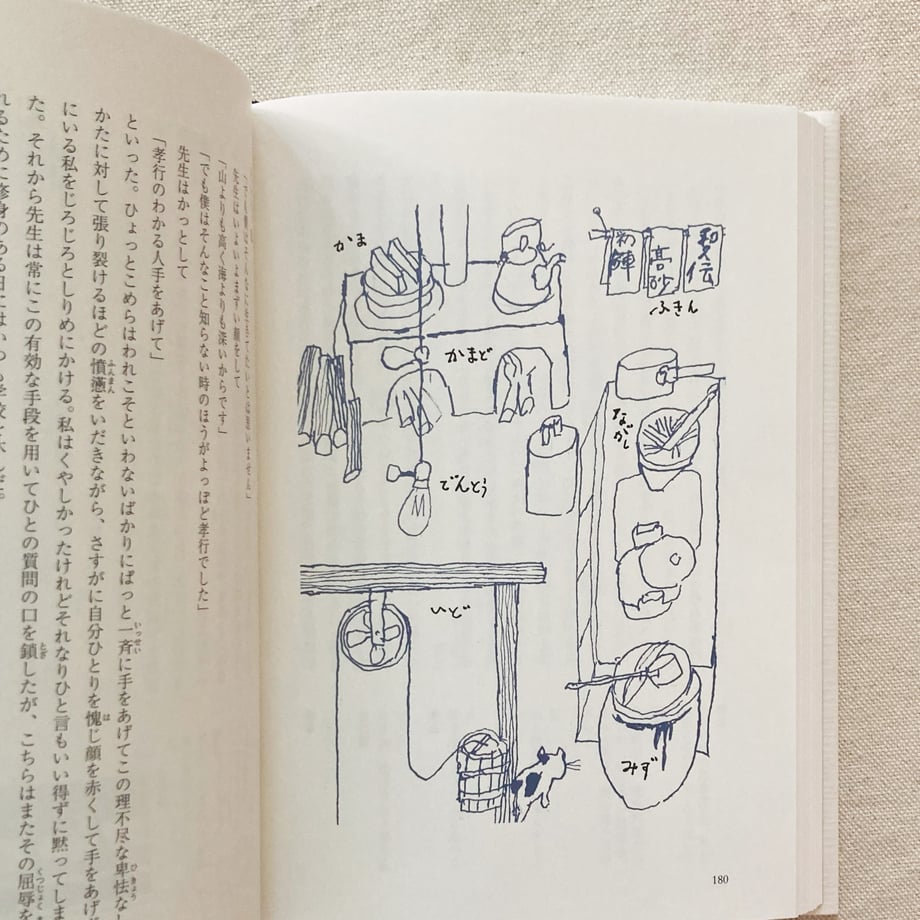 高砂
ふきん
かま
かまど
ながし
でんとう
いど
みず
180
先生はいよいよまずい顔をして
「山よりも高く海よりも深いからです」
「でも僕はそんなこと知らない時のほうがよっぽど孝行でした」
先生はかっとして
「孝行のわかる人手をあげて」
といった。ひょっとこめらはわれこそといわないばかりにぱっと一斉に手をあげてこの理不尽な卑怯な
かたに対して張り裂けるほどの憤懣をいだきながら、さすがに自分ひとりを愧じ顔を赤くして手をあげ
にいる私をじろじろとしりめにかける。私はくやしかったけれどそれなりひと言もいい得ずに黙ってしま
た。それから先生は常にこの有効な手段を用いてひとの質問の口を鎖したが、こちらはまたその屈辱を
れるために修身のある日にはいつも学校を休んだ。